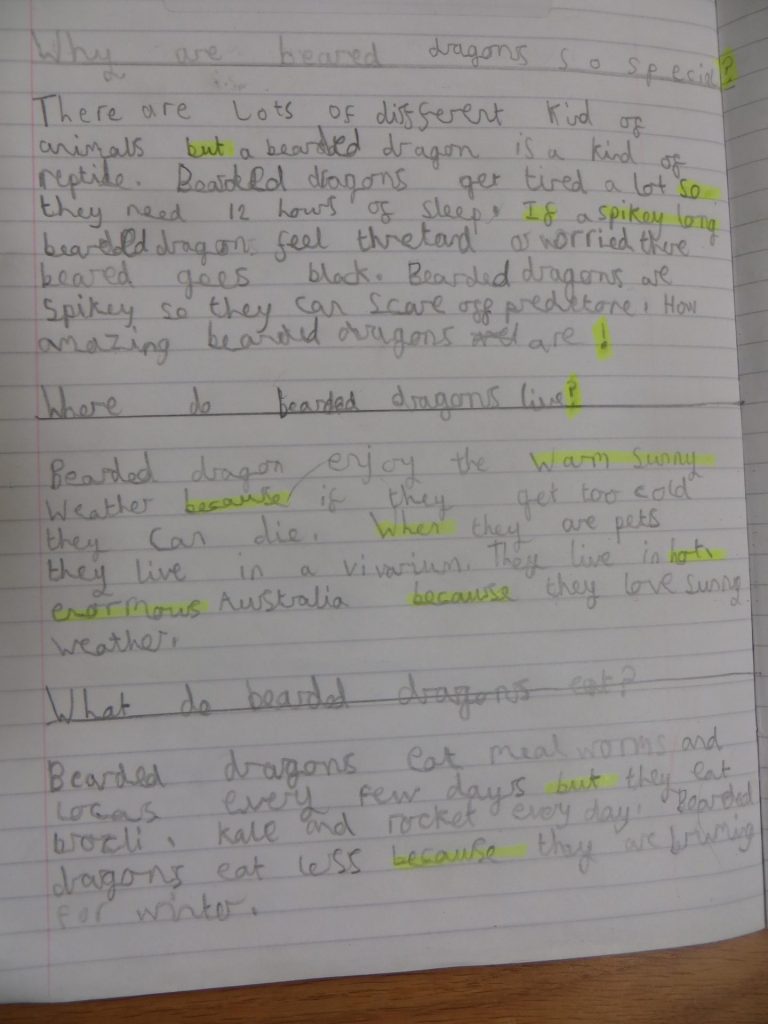 Why are beared dragons so special?
There are Lots of different kind of
animals but a bearded dragon is a kind of
reptile. Bearded dragons get tired a lot so
they need 12 hours of sleep. If a spikey long
bearded dragon feel thretard or worried there
beared goes black. Bearded dragons are
spikey so they can scare off predetore. How
amazing bearded dragons are!
Where do bearded dragons live?
Bearded dragon enjoy the warm sunny
weather because if they get too cold
they can die. When they are pets
they live in a vivarium. They live in hot,
enormous Australia because they love sunny
weather.
What do bearded dragons eat?
Bearded dragons eat meal worms and
locas every few days but they eat
brocli, kale and rocket every day. Bearded
dragons eat less because they are bruming
for winter.